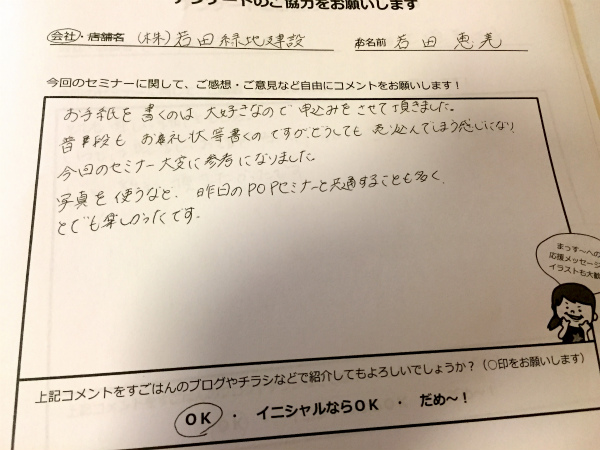 アンケートのご協力をお願いします
会社・店舗名 (株)岩田緑地建設 お名前 岩田 恵美
今回のセミナーに関して、ご感想・ご意見など自由にコメントをお願いします!
お手紙を書くのは大好きなので申込みをさせて頂きました。
普段も お礼状等書くのですが、どうしても 売り込んでしまう感じになり
今回のセミナー大変に参考になりました。
写真を使うなど、昨日のPOPセミナーと共通することも多く、
とても楽しかったです。
まっす~への
応援メッセージ
イラストも大歓
上記コメントをすごはんのブログやチラシなどで紹介してもよろしいでしょうか?(○印をお願いします)
OK ・ イニシャルならOK ・ だめ~!